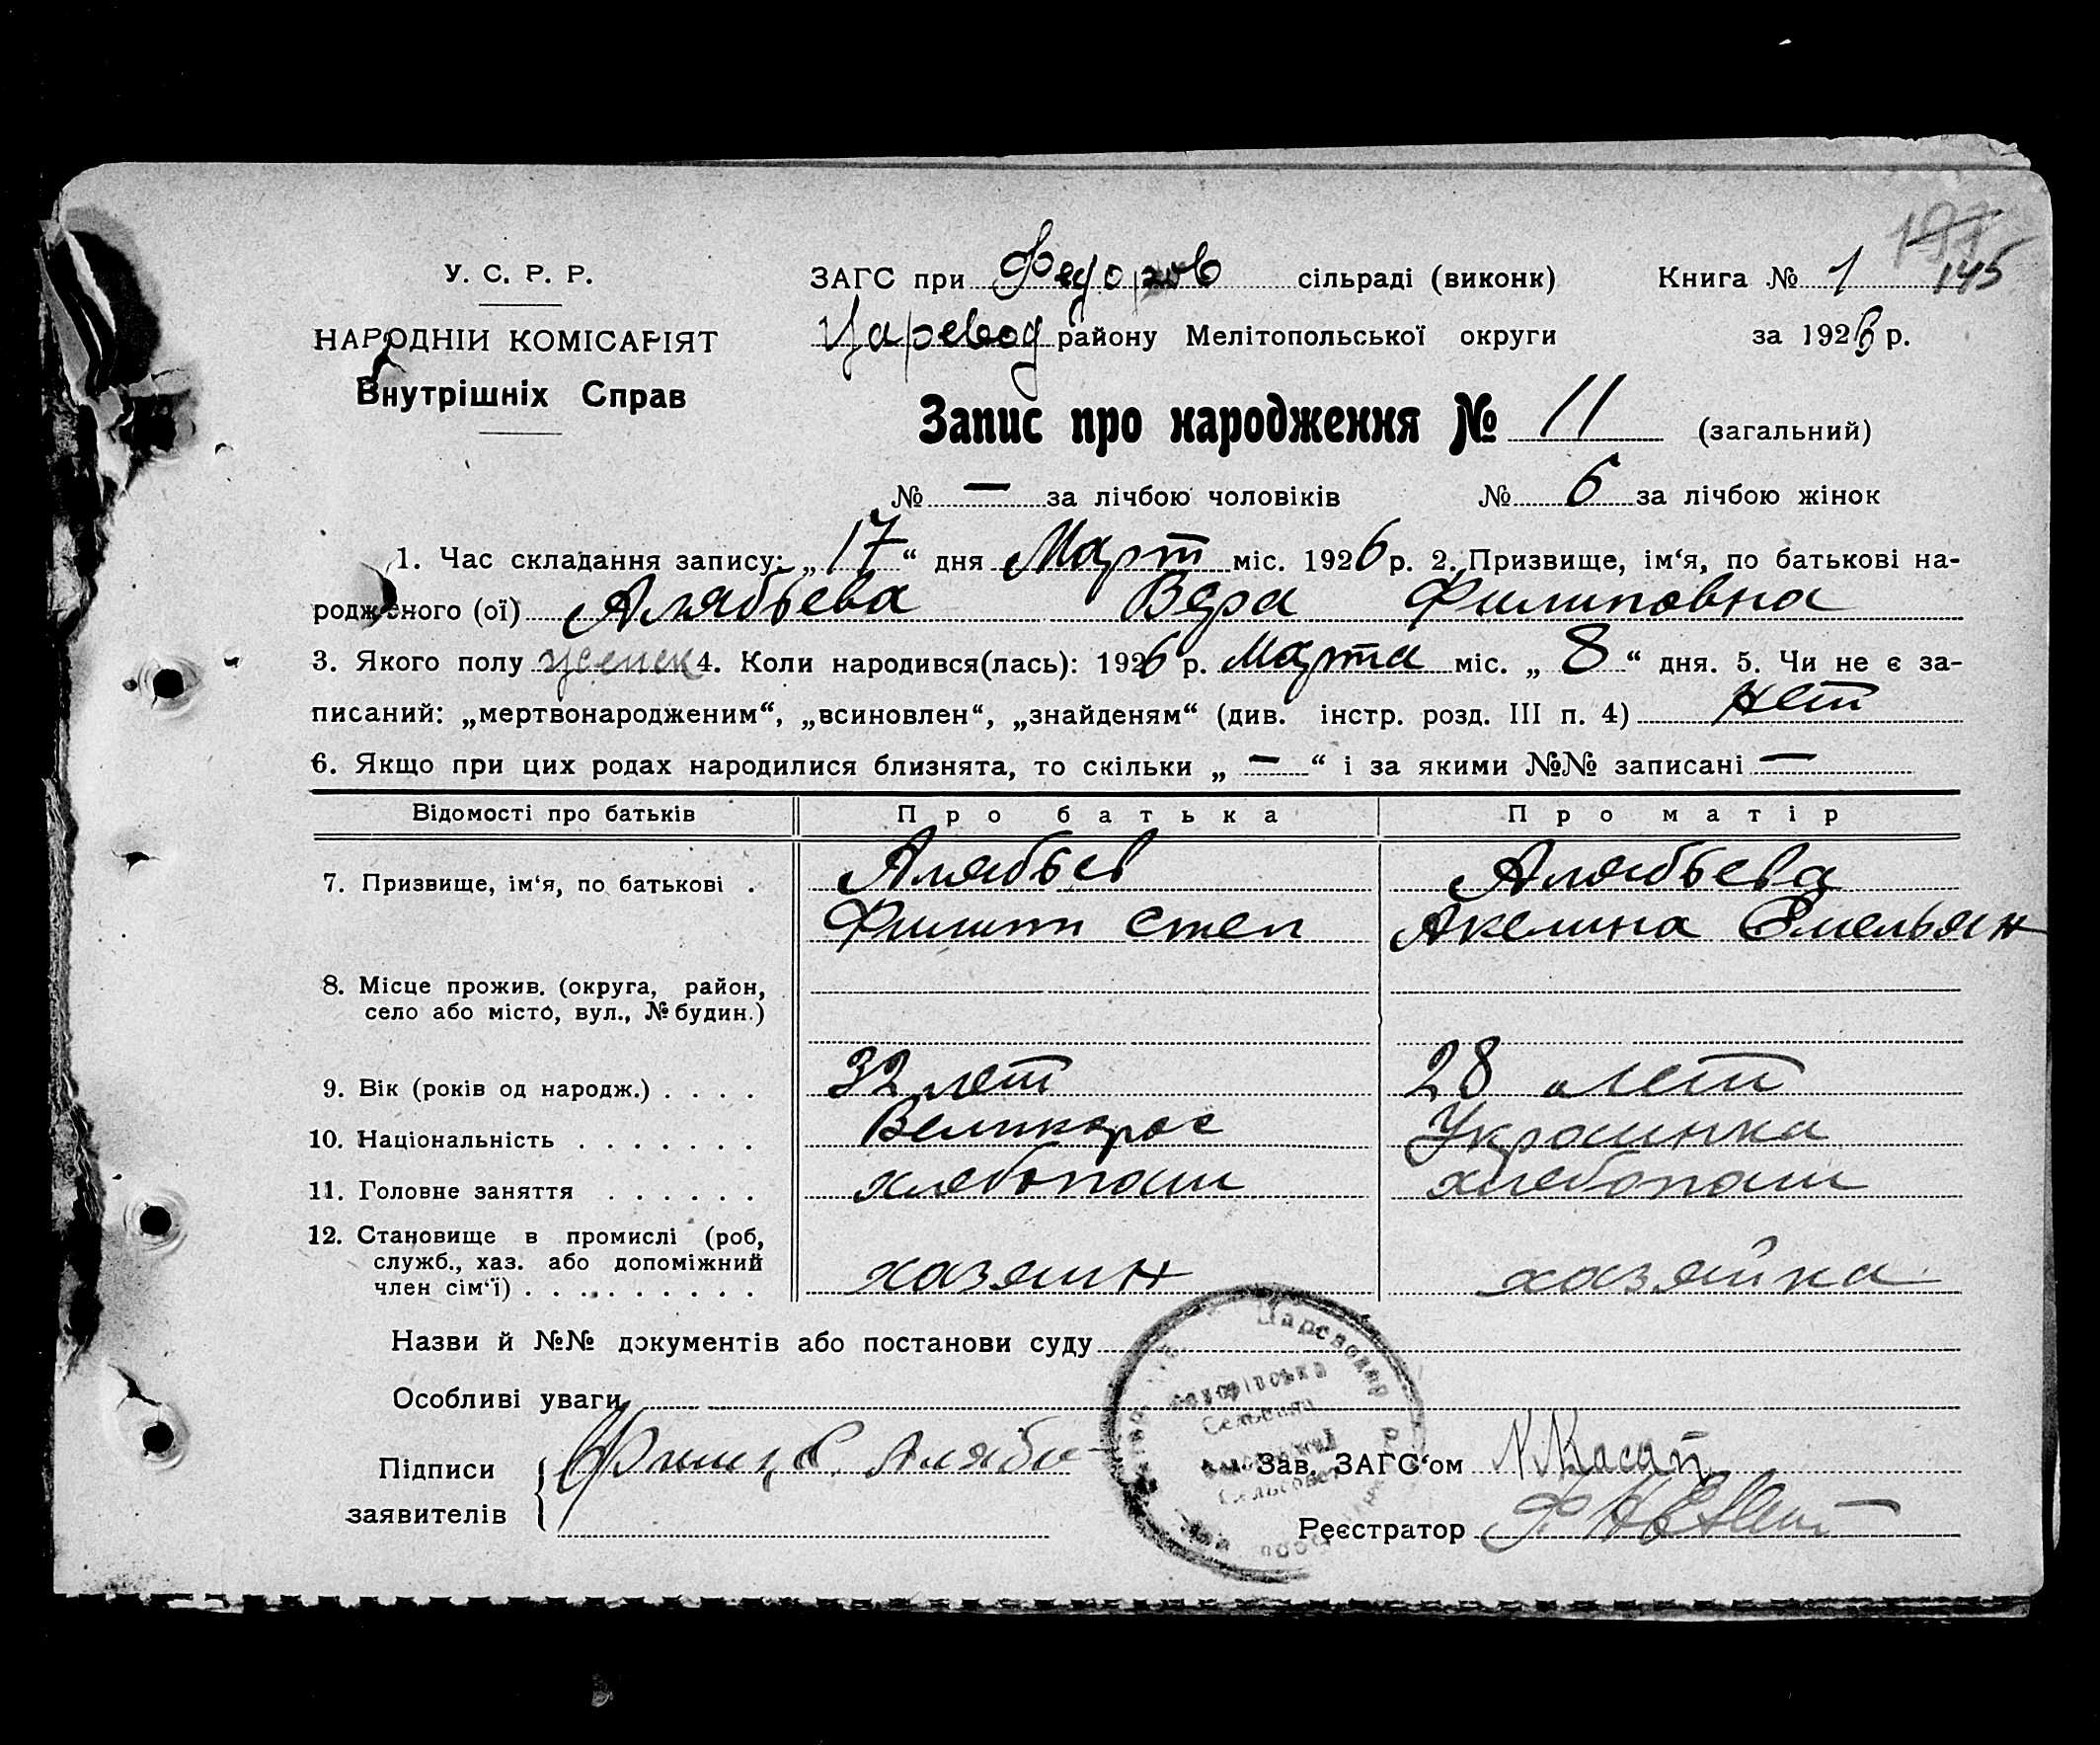 145
У. С. Р. Р. ЗАГС при Федоров сільраді (виконк) Книга № 1
НАРОДНІЙ КОМІСАРІЯТ Царевод району Мелітопольської округи за 1926 р.
Внутрішніх Справ
Запис про народження № 11 (загальний)
№ — за лічбою чоловіків № 6 за лічбою жінок
1. Час складання запису: „17“ дня Март міс. 1926 р. 2. Призвище, ім‘я, по батькові на-
родженого (ої) Алябьева Вера Филиповна
3. Якого полу женск 4. Коли народився(лась): 1926 р. Марта міс. „8“ дня. 5. Чи не є за-
писаний: „мертвонародженим“, „всиновлен“, „знайденям“ (див. інстр. розд. III п. 4) нет
6. Якщо при цих родах народилися близнята, то скільки „—“ і за якими №№ записані —
Відомості про батьків Про батька Про матір
7. Призвище, ім‘я, по батькові . Алябьев Алябьева
Филипп Степ Акелина Емельян
8. Місце прожив. (округа, район,
село або місто, вул., № будин.)
9. Вік (років од народж.) . . . . 32 лет 28 лет
10. Національність . . . . . . . Великорос Украинка
11. Головне заняття . . . . . . хлебопаш хлебопаш
12. Становище в промислі (роб,
служб., хаз. або допоміжний
член сім‘ї) . . . . . . . . . . хазяин хазяйка
Назви й №№ документів або постанови суду
Особливі уваги
Підписи Алябье Зав. ЗАГС‘ом
заявителів Реєстратор